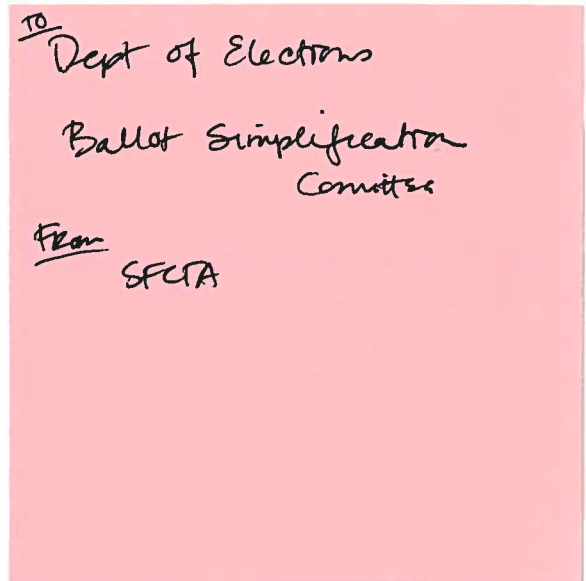 TO
Dept of Elections
Ballot Simplification
Comittee
From
SFCTA